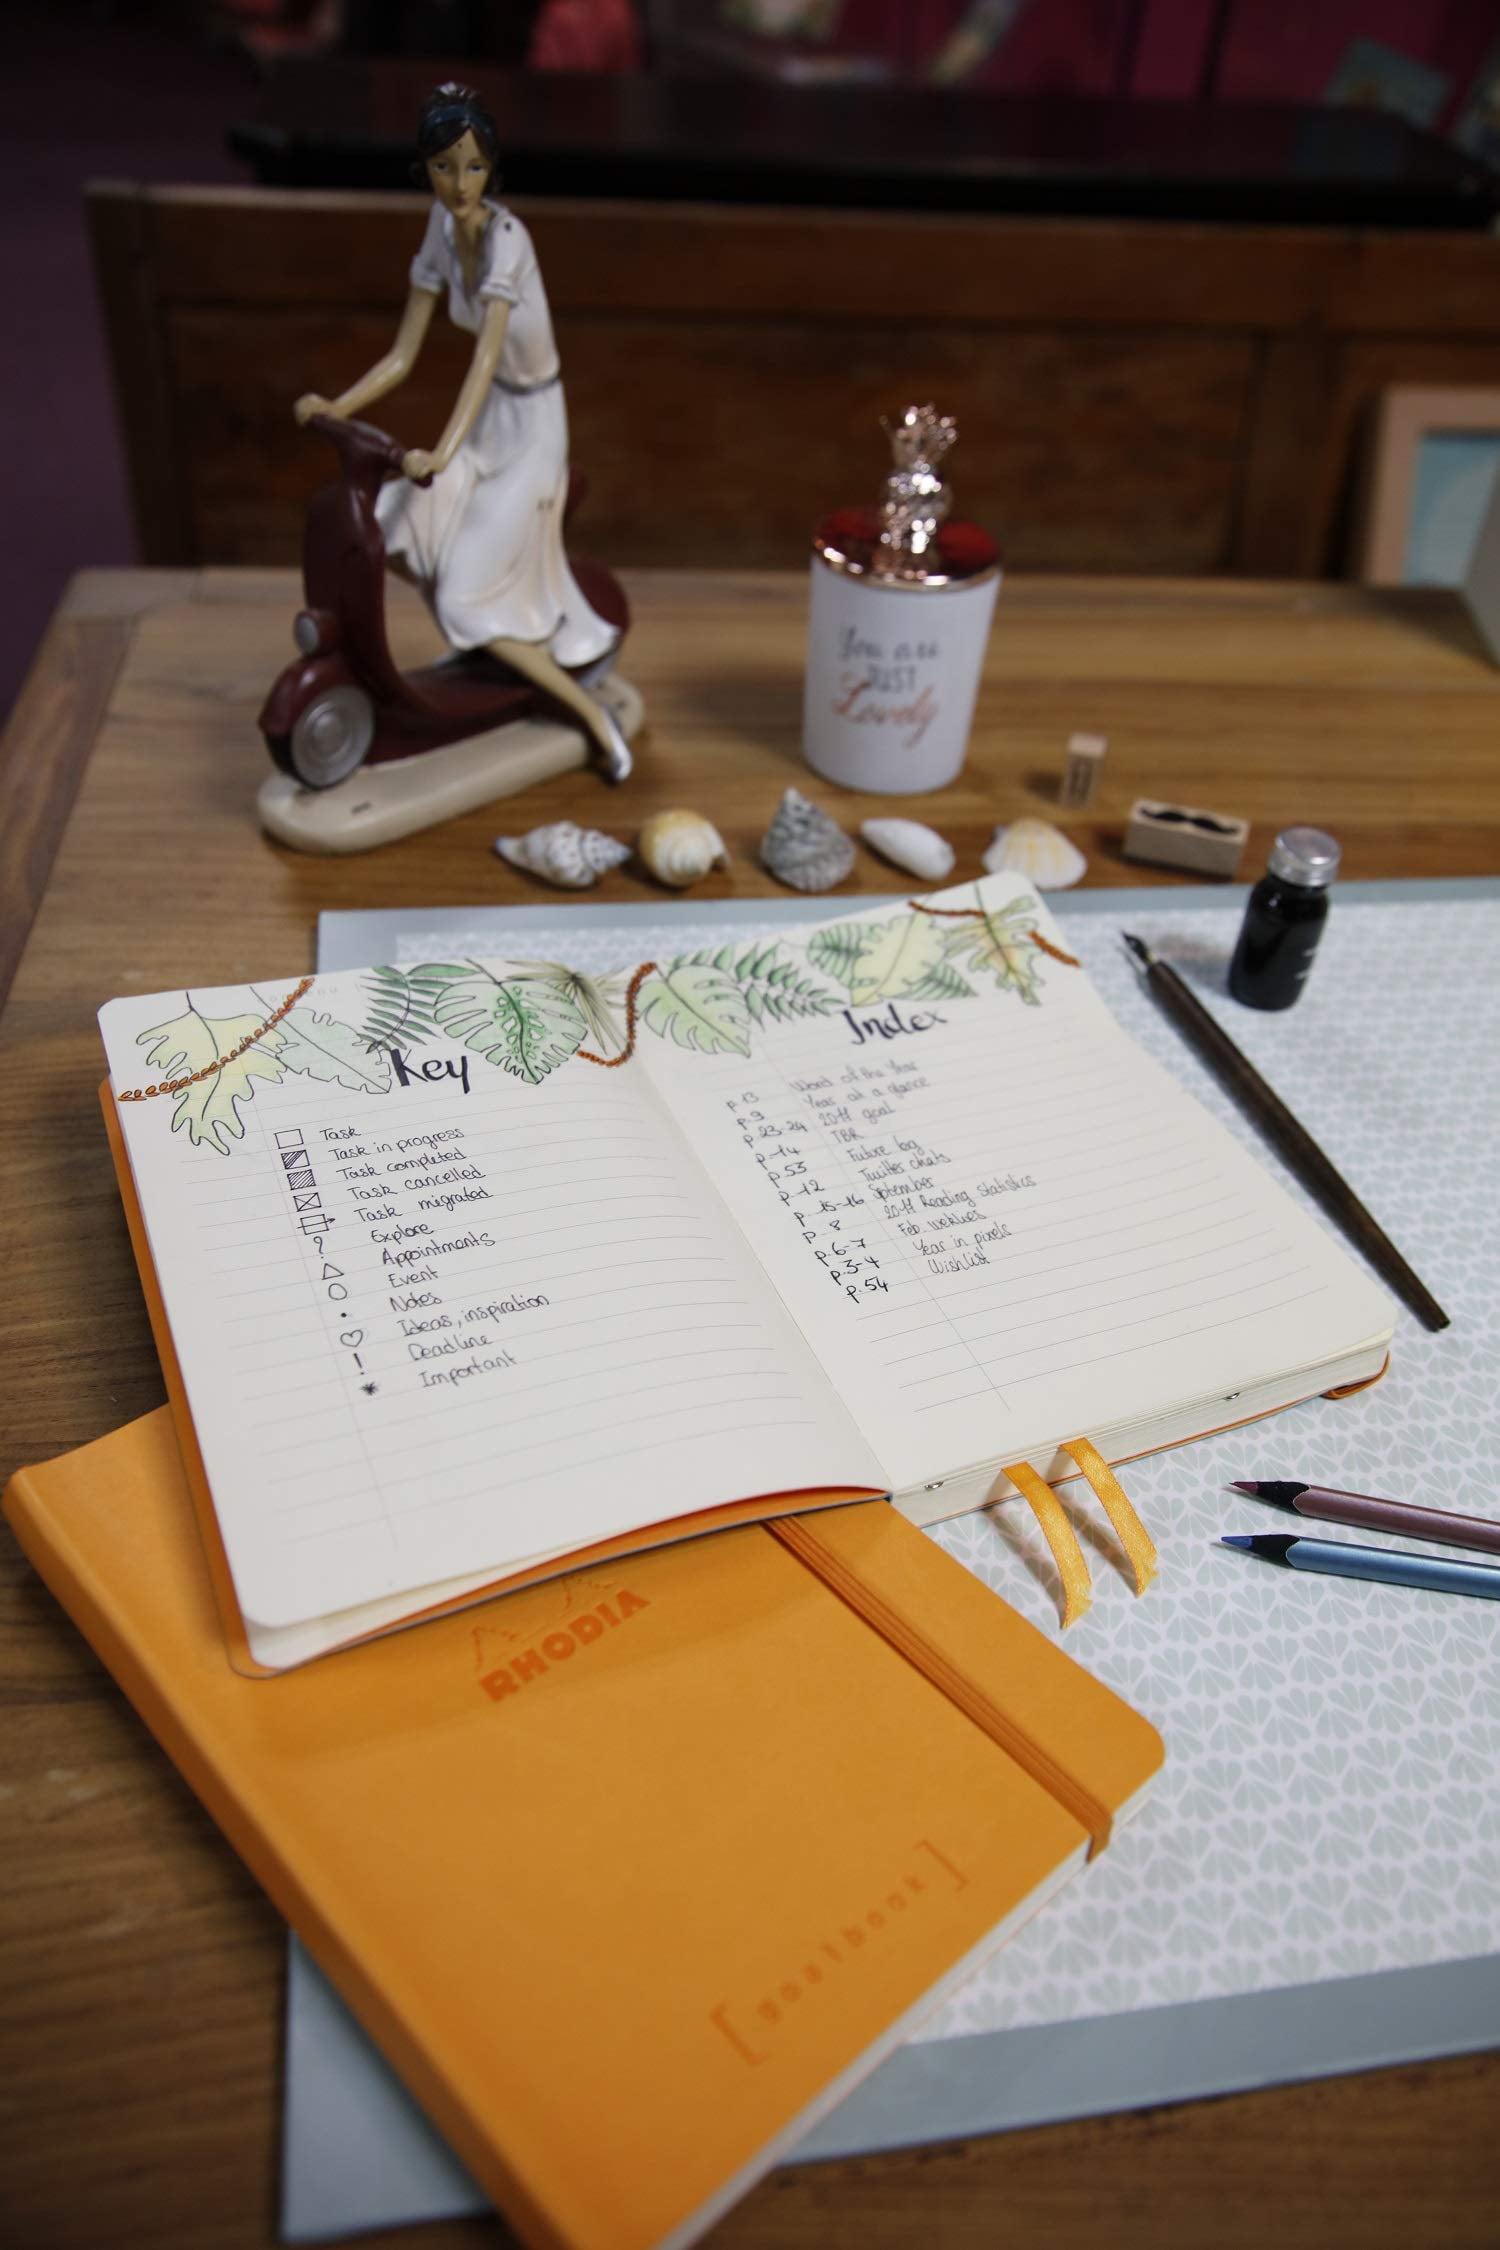 You are
JUST
Lovely
Key
Task
Task in progress
Task completed
Task cancelled
Task migrated
? Explore
Appointments
Event
Notes
Ideas, inspiration
! Deadline
* Important
Index
p.13 Word of the Year
p.9 Year at a glance
p.23-24 goal
p.14 TBR
p.53 Future log
p.12 Twitter chats
p.15-16 September
p.8 Reading statistics
p.6-7 Feb. weklies
p.3-4 Year in pixels
p.54 Wish list
RHODIA
[goalbook]